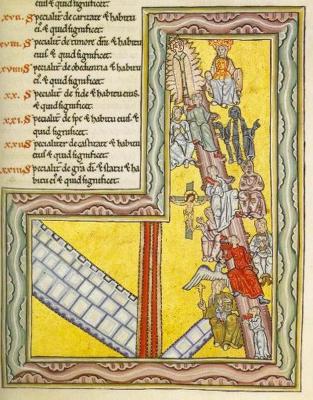 eius & quid significet.
XVII. Specialit de caritate & habitu
ei & quid significet.
XVIII. Specialit de timore dni & habitu
eius & quid significet.
XVIIII Specialit de obedientia & habitu
ei & quid significet.
XX. Specialit de fide & habitu eius
& quid significet.
XXI. Specialit de spe & habitu eius.
& quid significet.
Specialiter de castitate & habitu
eius & quid significet.
XXIII Specialit de gra di & statu & ha
bitu ei & quid significet.